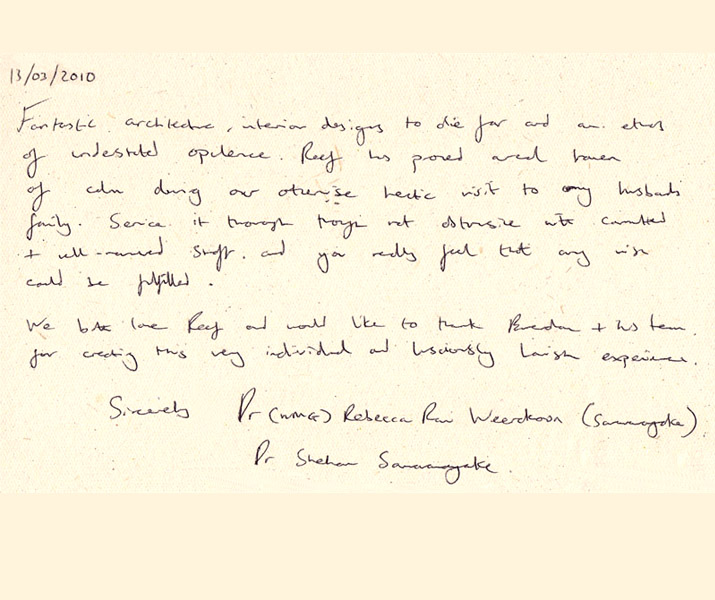 13/03/2010
Fantastic architecture, interior designs to die for and an ethos
of understated opulence. Reef has proved a real haven
of calm during our otherwise hectic visit to my husbands
family. Service is thorough though not obtrusive with committed
+ well-mannered staff. and you really feel that any wish
could be fulfilled.
We both love Reef and would like to thank + his team.
for creating this very individual and lusciously lavish experience.
Sincerely Dr (Mrs) Rebecca Weerakoon (Samarayake)
Dr Shehan Samarayake.